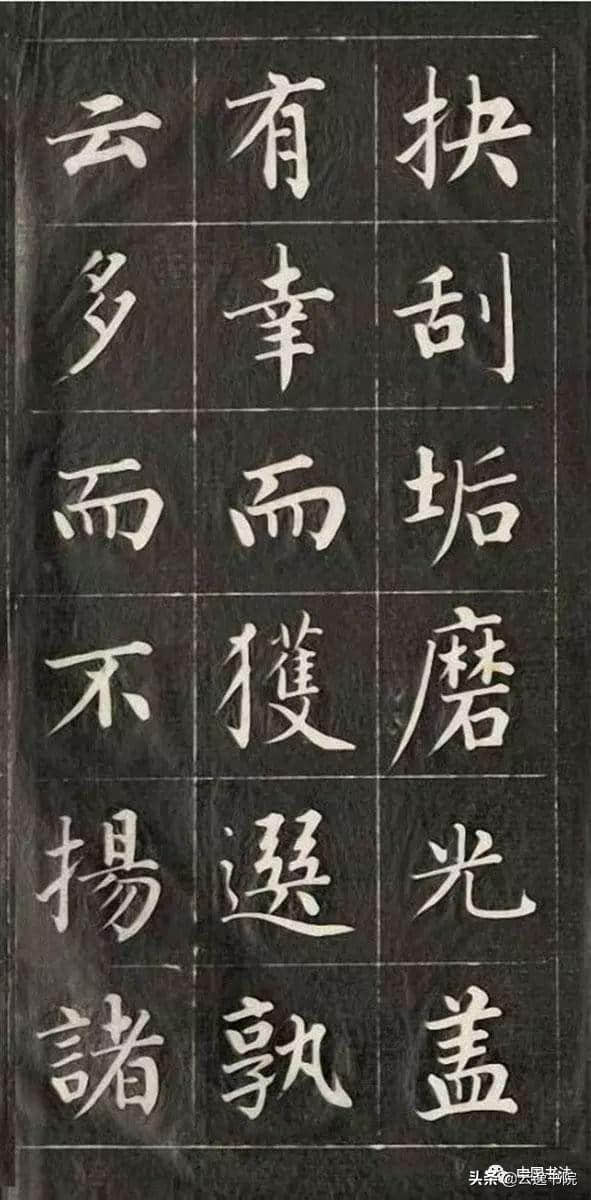 抉刮垢磨光盖
有幸而獲選孰
云多而不揚諸
中国书法
头条@云逸书院